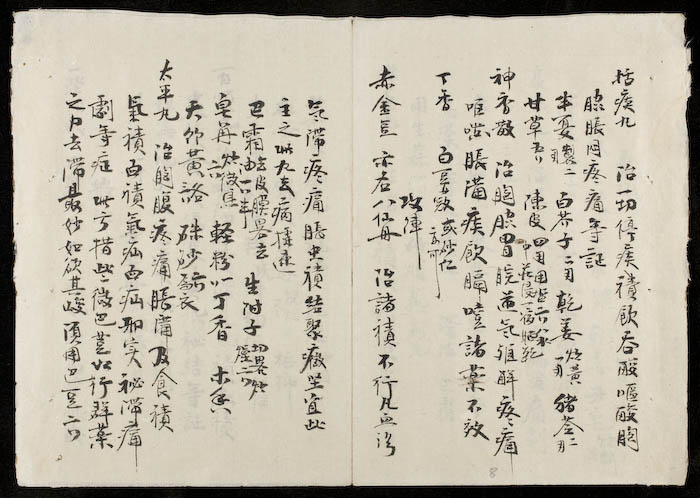 括痰丸 治一切停痰積飲吞酸嘔酸胸
脇脹悶疼痛等証
半夏製二兩 白芥子二兩 乾姜炒黃一兩 猪苓二兩
甘草五 陳皮四兩用塩
神香散 治胸脇胃脘逆气难解疼痛
嘔哕脹滿痰飲膈噎諸藥不效
丁香 白荳蔻 或砂仁亦可
攻陣
赤金豆 亦名八仙丹 治諸積不行凡血凝
氣滯疼痛脹虫積結聚癥堅宜此
主之此丸去病捷速
巴霜去皮膜畧去油 生附子切畧炒燥二
皂角炒微焦 輕粉一 丁香 木香
天竹黃各 硃砂為衣
太平丸 治胸腹疼痛脹滿及食積
氣積血積氣疝血疝邪实秘滯痛
劇等症此方借些微巴荳以行群藥
之力去滯最妙如欲其峻須用巴豆二
8